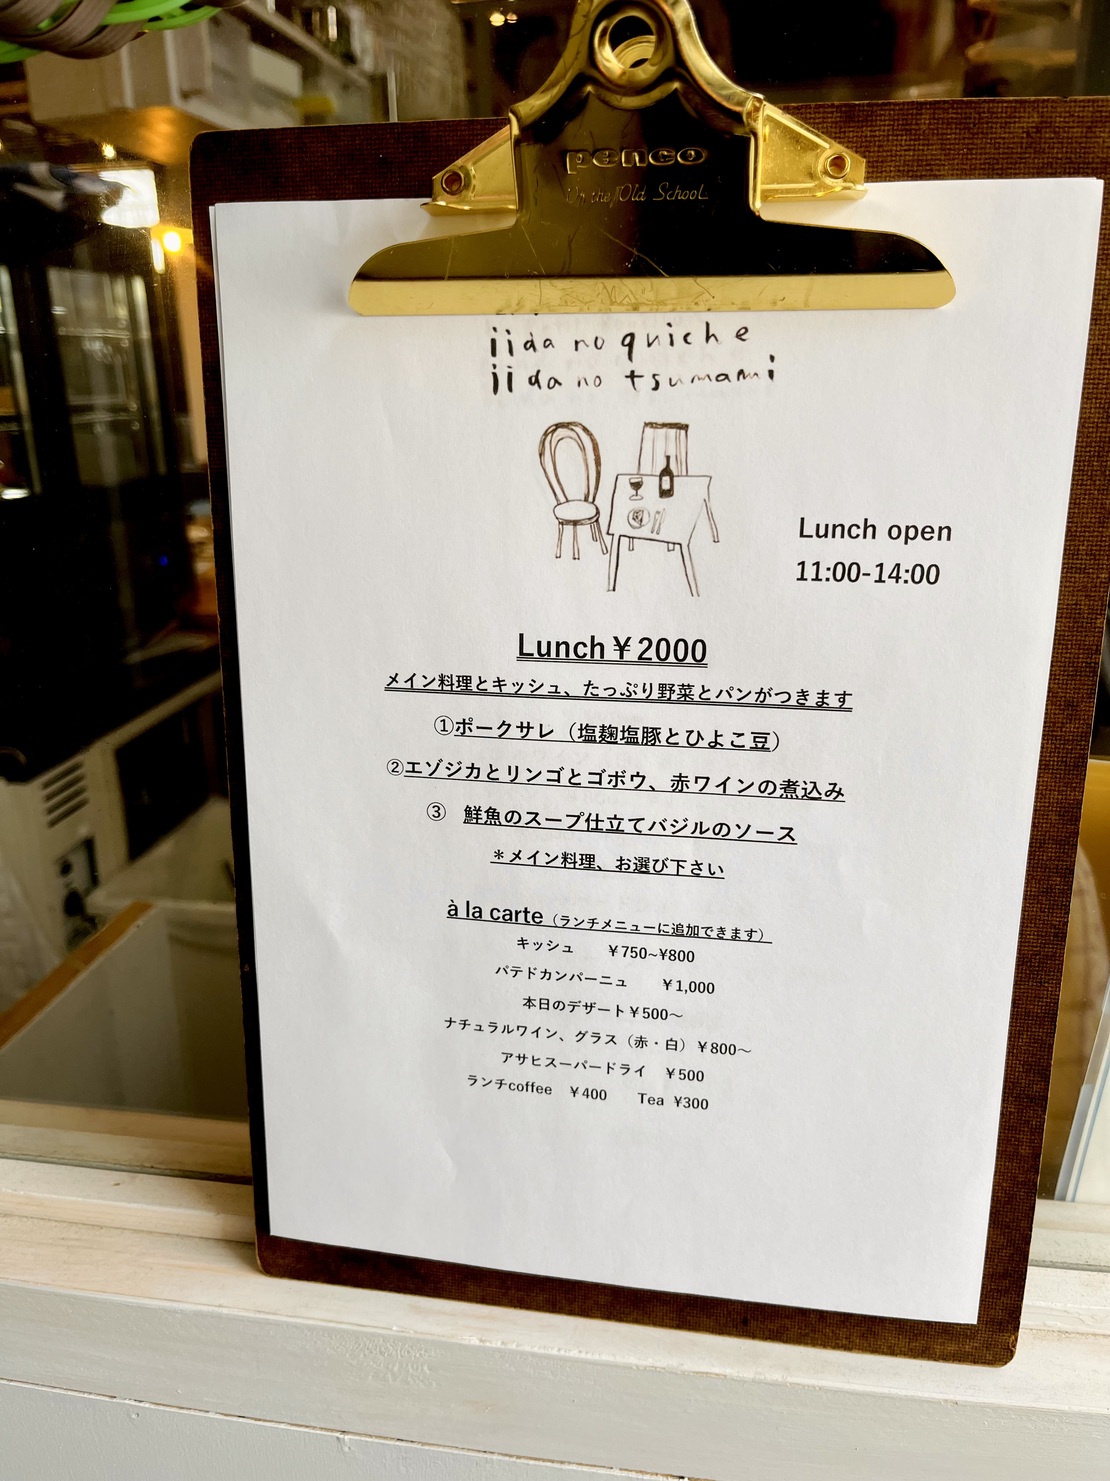 penco
On the Old School
iida no quiche
iida no tsumami
Lunch open
11:00-14:00
Lunch￥2000
メイン料理とキッシュ、たっぷり野菜とパンがつきます
①ポークサレ（塩麹塩豚とひよこ豆）
②エゾジカとリンゴとゴボウ、赤ワインの煮込み
③　鮮魚のスープ仕立てバジルのソース
＊メイン料理、お選び下さい
à la carte（ランチメニューに追加できます）
キッシュ　　￥750~¥800
パテドカンパーニュ　　￥1,000
本日のデザート￥500～
ナチュラルワイン、グラス（赤・白）￥800～
アサヒスーパードライ　￥500
ランチcoffee　￥400　　Tea ¥300